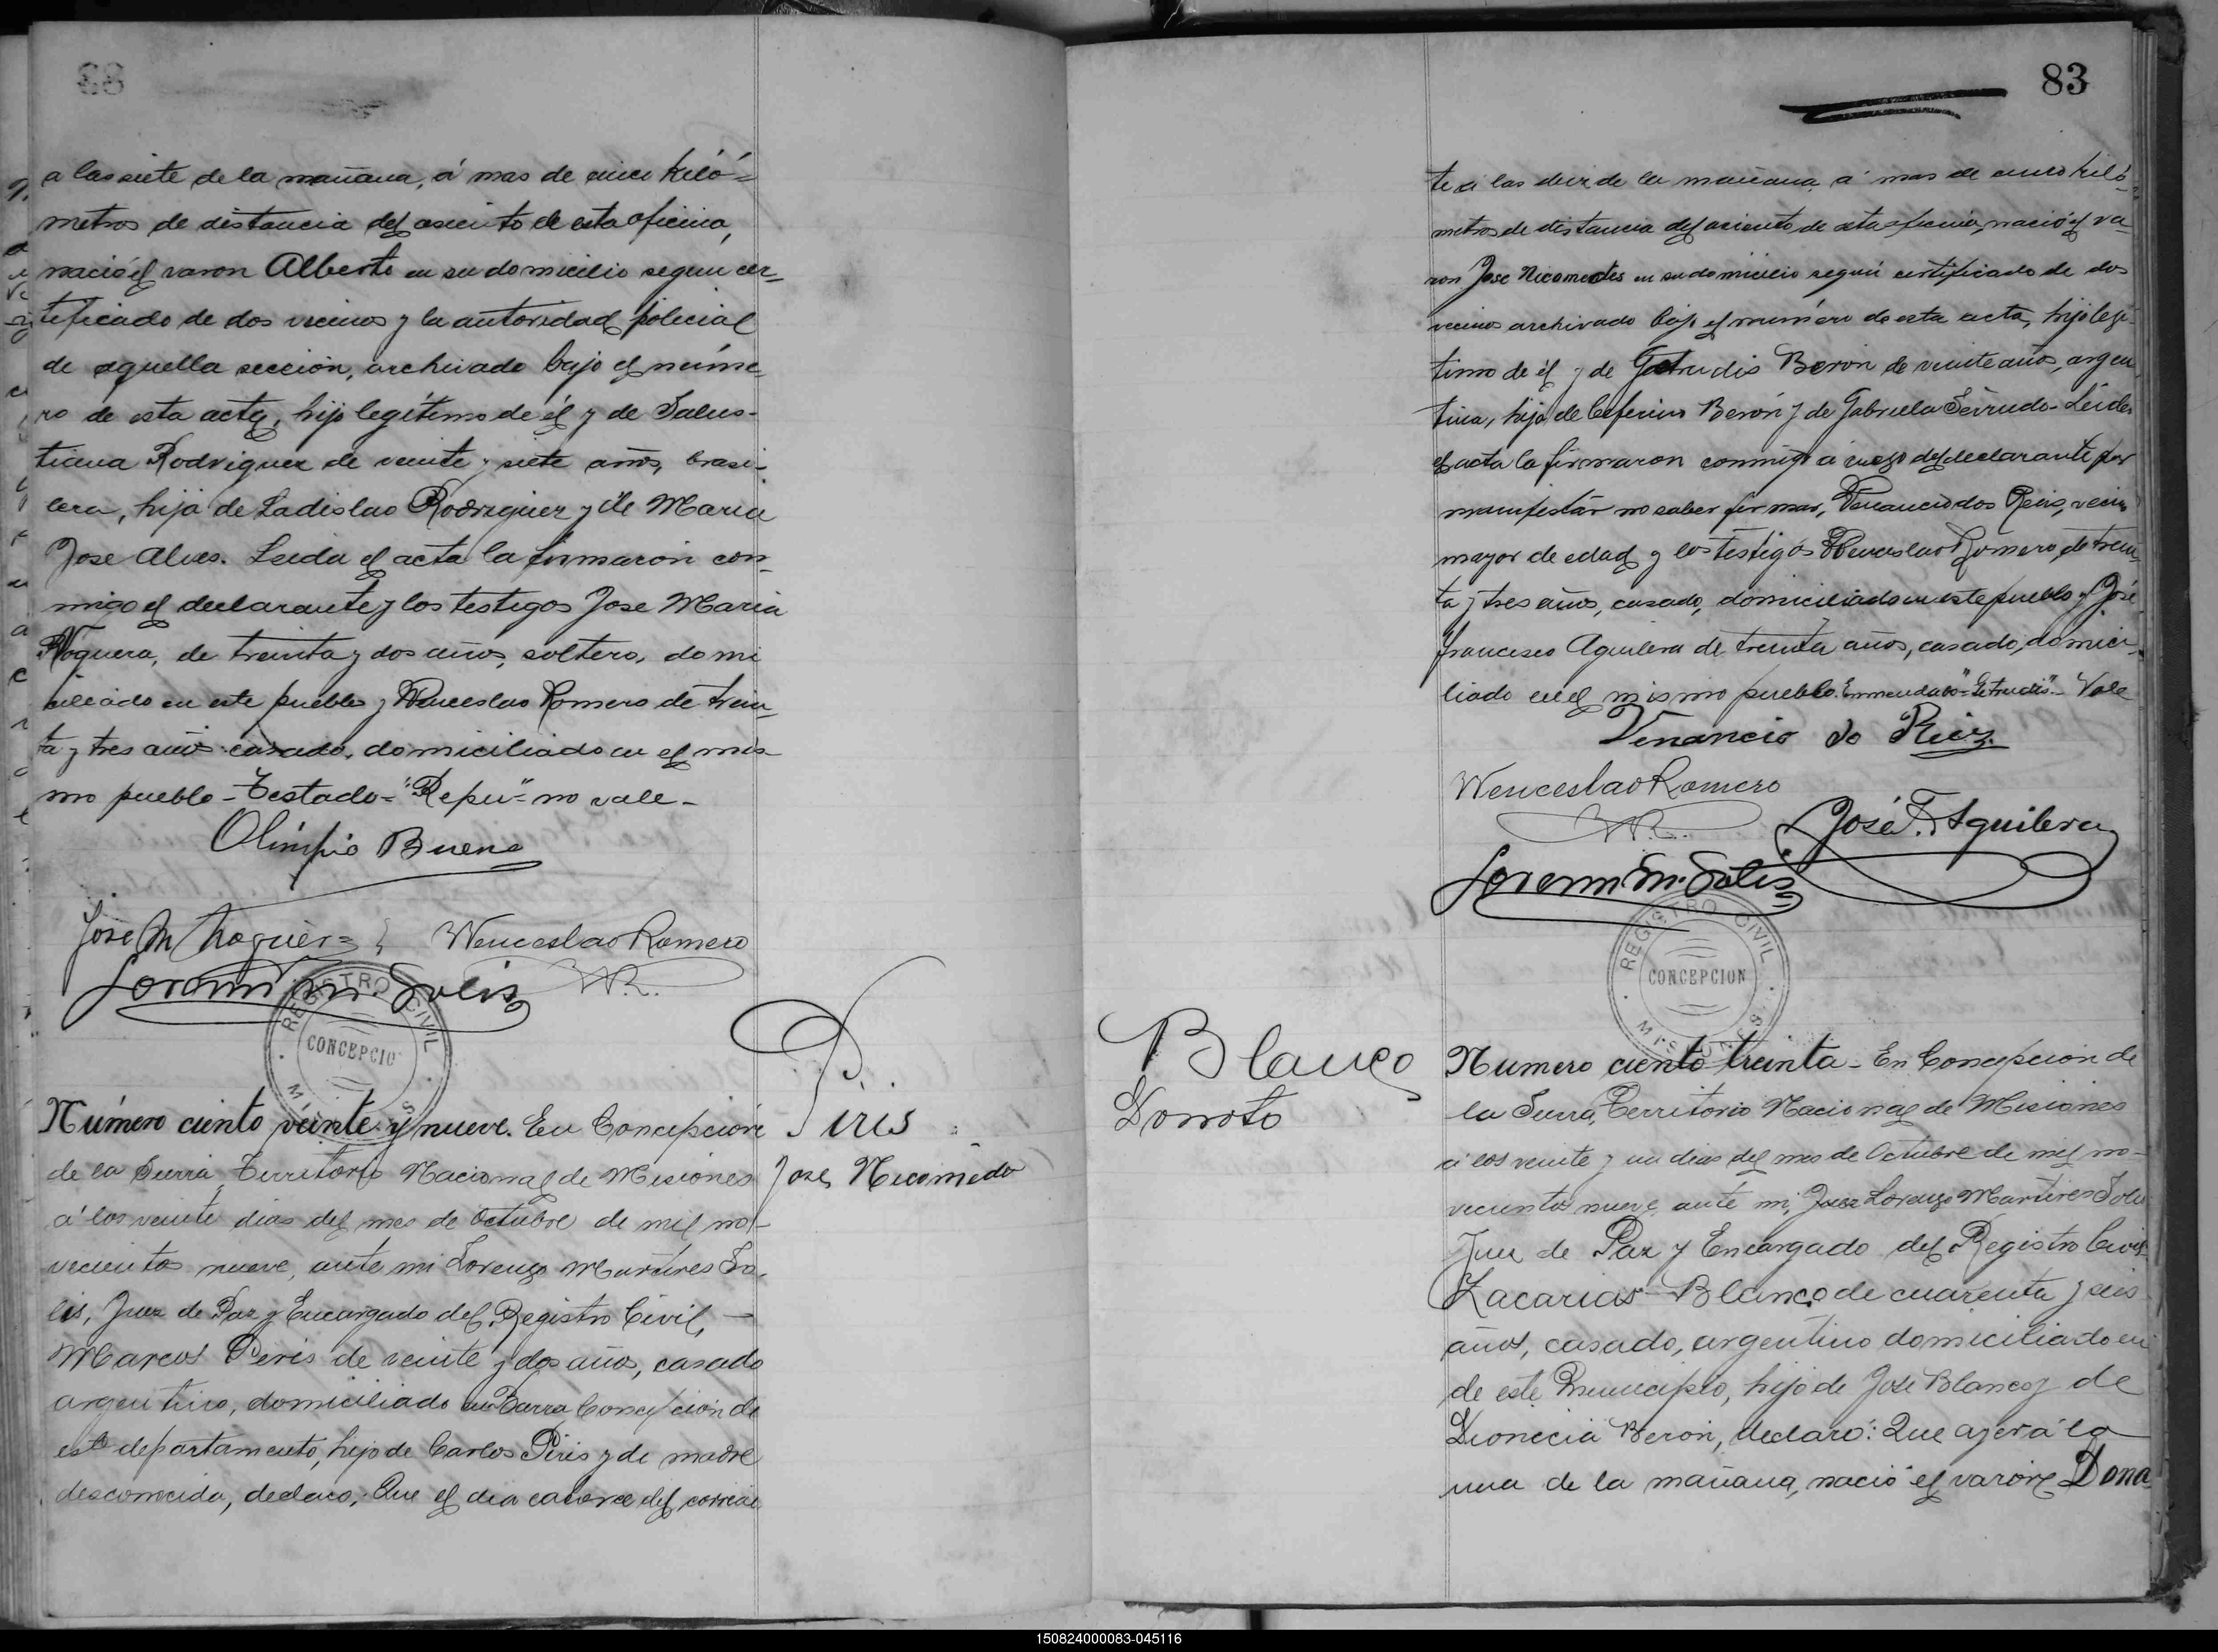 a las siete de la mañana, á mas de cinco kiló=
metros de distancia del asiento de esta oficina,
nació el varon Alberto en su domicilio segun cer=
tificado de dos vecinos y la autoridad policial
de aquella sección, archivado bajo el núme-
ro de esta acta, hijo legítimo de él y de Salus-
tiana Rodriguez de veinte y siete años, brasi-
lera, hija de Ladislao Rodriguez y de Maria
Jose Alves. Leida el acta la firmaron con-
migo el declarante y los testigos Jose Maria
Noguera, de treinta y dos años, soltero, domi
ciliado en este pueblo y Wenceslao Romero de trein-
ta y tres años casado, domiciliado en el mis
mo pueblo - Testado = "Repu" = no vale -
Olimpio Bueno
Jose M Noguera Wenceslao Romero
Lorenzo M. Solis W.R.
REGISTRO CIVIL
CONCEPCIO
MIS
Piris
Jose Nicomedo
Número ciento veinte y nueve. En Concepción
de la Sierra Territorio Nacional de Misiones
á los veinte dias del mes de Octubre de mil no-
vecientos nueve, ante mi Lorenzo Martires So-
lis, Juez de Paz y Encargado del Registro Civil, -
Marcos Piris de veinte y dos años, casado
argentino, domiciliado en Barra Concepción de
este departamento, hijo de Carlos Piris y de madre
desconocida, declaro; Que el dia catorce del corrien
83
te á las diez de la mañana á mas de cinco kiló-
metros de distancia del asiento de esta oficina, nació el va-
ron Jose Nicomedes en su domicilio según certificado de dos
vecinos archivado bajo el número de esta acta, hijo legi-
timo de él y de Getrudis Beron de veinte años, argen
tina, hija de Ceferino Berón y de Gabriela Serrudo - Leida
el acta la firmaron conmigo á ruego del declarante por
manifestar no saber firmar, Venancio dos Reis, vecino
mayor de edad y los testigos Wenceslao Romero, de trein-
ta y tres años, casado, domiciliado en este pueblo y José
Francisco Aguilera de treinta años, casado, domici-
liado en el mismo pueblo. Enmendado "Getrudis" - Vale
Venancio do Reis
Wenceslao Romero
W.R. José F. Aguilera
Lorenzo M. Solis
REGISTRO CIVIL
CONCEPCION
MISIONES
Blanco
Donoto
Número ciento treinta - En Concepcion de
la Sierra, Territorio Nacional de Misiones
á los veinte y un dias del mes de Octubre de mil no-
vecientos nueve ante mi, Juez Lorenzo Martires Solis
Juez de Paz y Encargado del Registro Civil
Zacarias Blanco de cuarenta y seis
años, casado, argentino domiciliado en
de este Municipio, hijo de José Blanco y de
Dionicia Beron, declaró: Que ayer á la
una de la mañana, nació el varón Dona